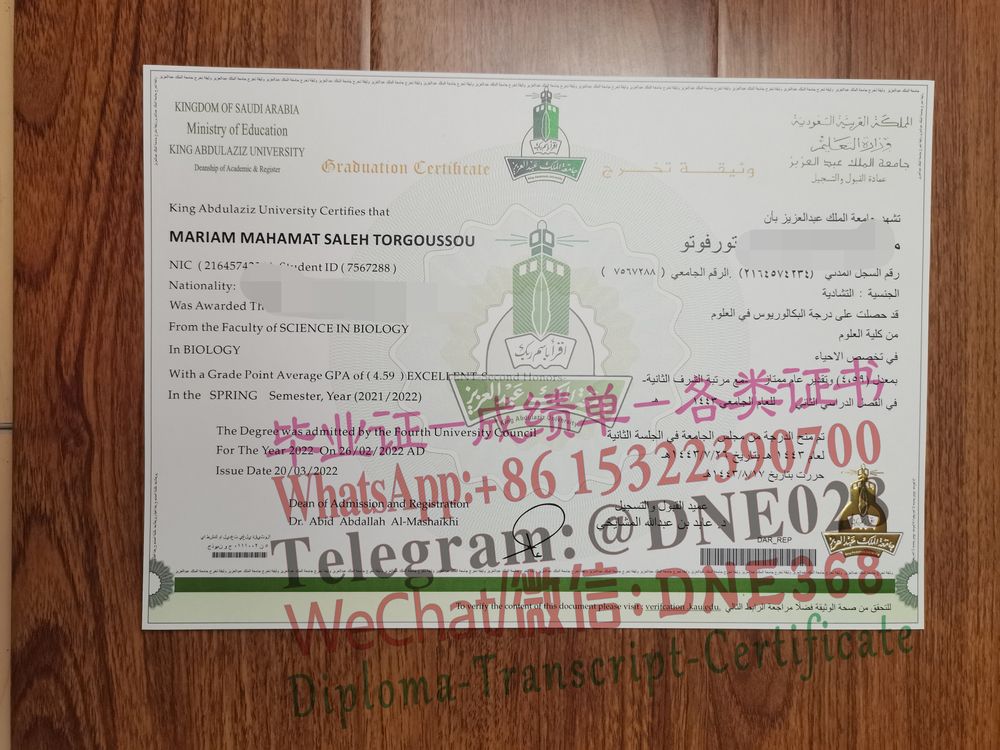 KINGDOM OF SAUDI ARABIA
Ministry of Education
KING ABDULAZIZ UNIVERSITY
Deanship of Academic & Register
Graduation Certificate
وثيقة تخرج
المملكة العربية السعودية
وزارة التعليم
جامعة الملك عبد العزيز
عمادة القبول والتسجيل
جامعة الملك عبد العزيز
King Abdulaziz University Certifies that
MARIAM MAHAMAT SALEH TORGOUSSOU
NIC ( 21645742 Student ID ( 7567288 )
Nationality:
Was Awarded
From the Faculty of SCIENCE IN BIOLOGY
In BIOLOGY
With a Grade Point Average GPA of ( 4.59 ) EXCELLENT Second Honors
In the SPRING Semester, Year (2021/2022)
The Degree was admitted by the Fourth University Council
For The Year 2022 On 26/02/2022 AD
Issue Date 20/03/2022
Dean of Admission and Registration
Dr. Abid Abdallah Al-Mashaikhi
تشهد جامعة الملك عبدالعزيز بأن
تورفوتو
رقم السجل المدني (٢١٦٤٥٧٤٢٣٤) الرقم الجامعي ( ٧٥٦٧٢٨٨ )
الجنسية : التشادية
قد حصلت على درجة البكالوريوس في العلوم
من كلية العلوم
في تخصص الاحياء
بمعدل (٤,٥٩) وتقدير عام ممتاز مع مرتبة الشرف الثانية-
في الفصل الدراسي الثاني للعام الجامعي ١٤٤٣هـ
تم منح الدرجة من مجلس الجامعة في الجلسة الثانية
لعام ١٤٤٣ هـ بتاريخ ١٤٤٣/٧/٢٦هـ
حررت بتاريخ ١٤٤٣/٨/١٧هـ
عميد القبول والتسجيل
د. عابد بن عبدالله المشايخي
اقرأ باسم ربك
جامعة الملك عبد العزيز
King Abdulaziz University
DAR_REP
To verify the content of this document please visit : verifcation_kau.edu.
للتحقق من صحة الوثيقة فضلا مراجعة الرابط التالي
毕业证－成绩单－各类证书
WhatsApp:+86 15322390700
Telegram: @DNE028
WeChat/微信: DNE368
Diploma-Transcript-Certificate